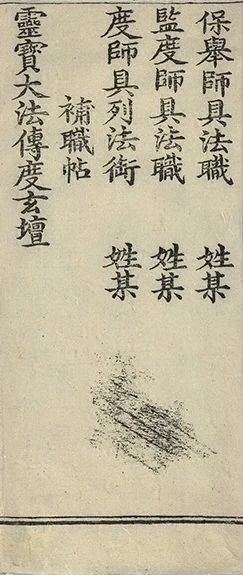 保舉師具法職　　姓某
監度師具法職　　姓某
度師具列法銜　　姓某
補職帖
靈寶大法傳度玄壇